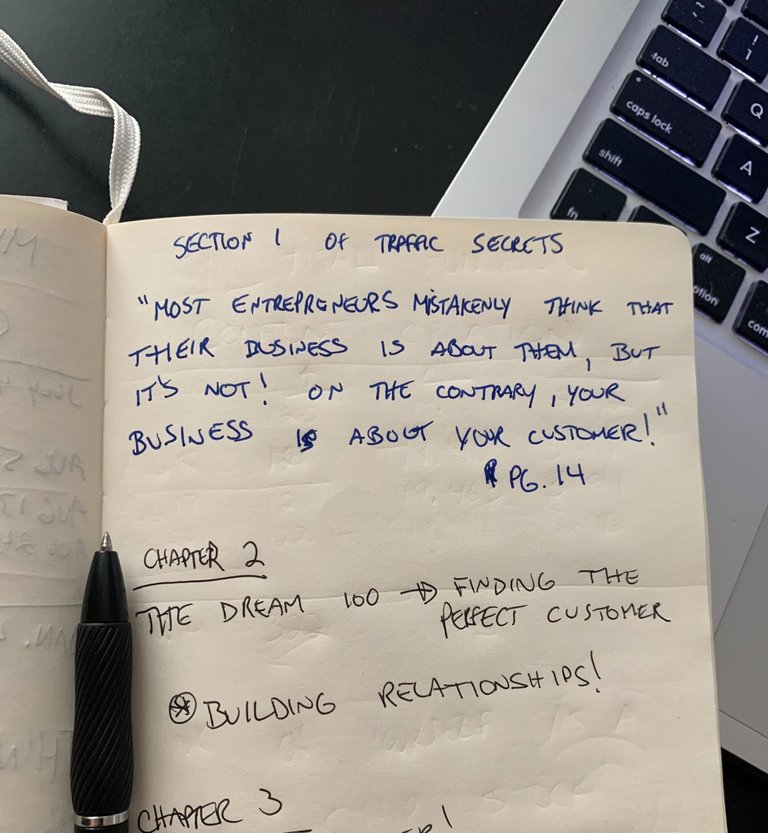 SECTION 1 OF TRAFFIC SECRETS
"MOST ENTREPRENEURS MISTAKENLY THINK THAT
THEIR BUSINESS IS ABOUT THEM, BUT
IT'S NOT! ON THE CONTRARY, YOUR
BUSINESS IS ABOUT YOUR CUSTOMER!"
PG. 14
CHAPTER 2
THE DREAM 100 → FINDING THE
PERFECT CUSTOMER
* BUILDING RELATIONSHIPS!
CHAPTER 3
~
!
1
tab
Q
caps lock
A
shift
Z
fn
alt
option